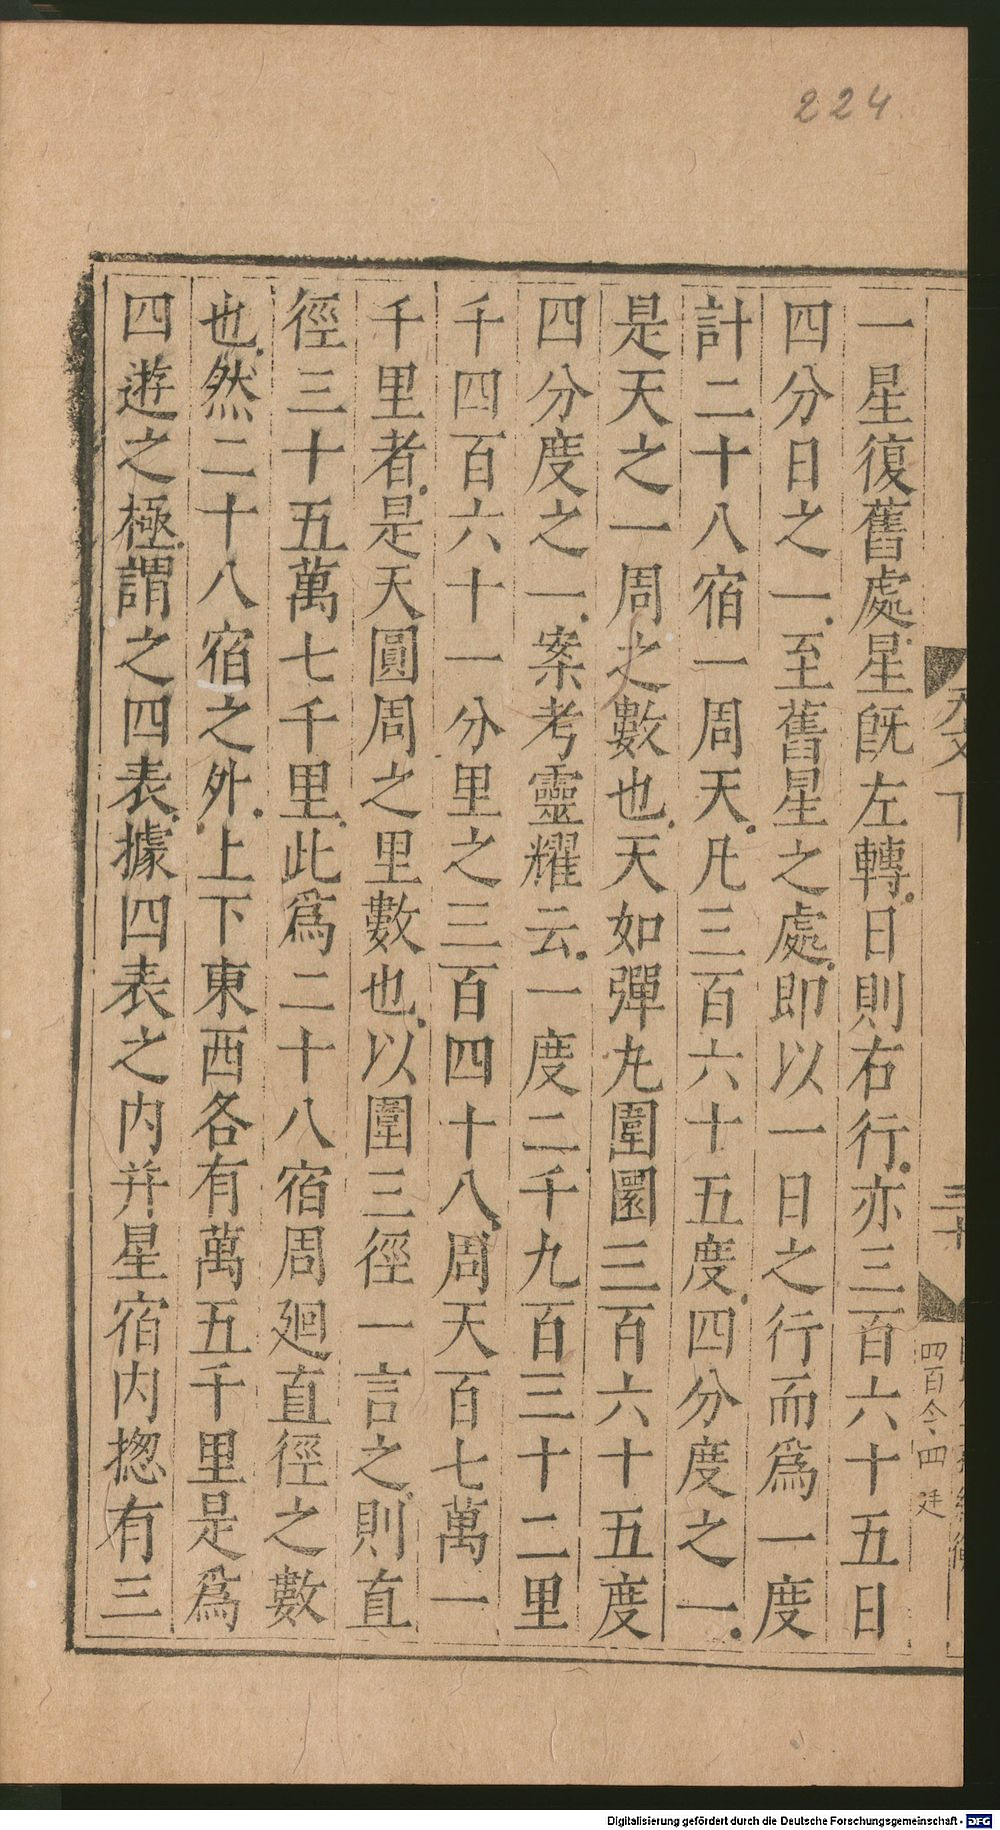 224
一星復舊處星旣左轉日則右行亦三百六十五日
四分日之一至舊星之處即以一日之行而爲一度
計二十八宿一周天凡三百六十五度四分度之一
是天之一周之數也天如彈丸圍圜三百六十五度
四分度之一案考靈耀云一度二千九百三十二里
千四百六十一分里之三百四十八周天百七萬一
千里者是天圓周之里數也以圍三徑一言之則直
徑三十五萬七千里此爲二十八宿周廻直徑之數
也然二十八宿之外上下東西各有萬五千里是爲
四遊之極謂之四表據四表之內并星宿內揔有三
下
三十
四百令四
Digitalisierung gefördert durch die Deutsche Forschungsgemeinschaft - DFG